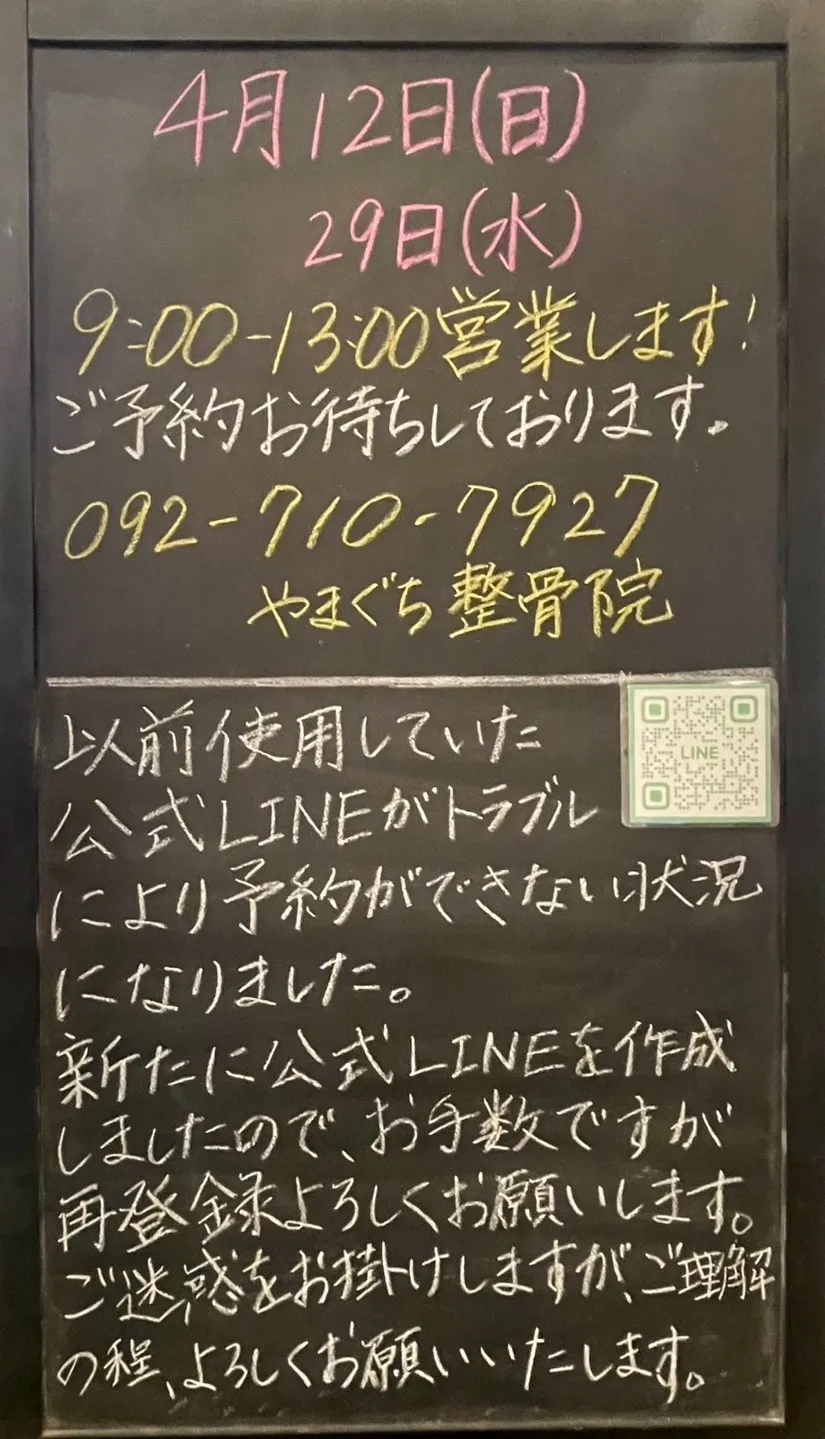 4月12日(日)
29日(水)
9:00-13:00営業します!
ご予約お待ちしております。
092-710-7927
やまぐち整骨院
LINE
以前使用していた
公式LINEがトラブル
により予約ができない状況
になりました。
新たに公式LINEを作成
しましたので、お手数ですが
再登録よろしくお願いします。
ご迷惑をお掛けしますが、ご理解
の程、よろしくお願いいたします。